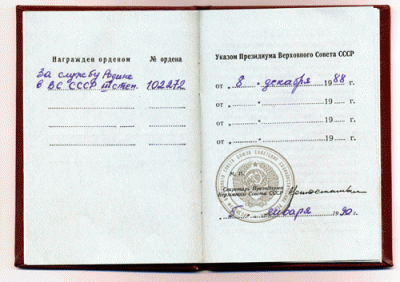 Награжден орденом
№ ордена
За службу Родине
в ВС СССР III степ.
102272
Указом Президиума Верховного Совета СССР
от „ 8 " декабря 1988 г.
от „ " 19 г.
от „ " 19 г.
от „ " 19 г.
М. П.
Секретарь Президиума
Верховного Совета СССР
„ 5 " января 1990 г.